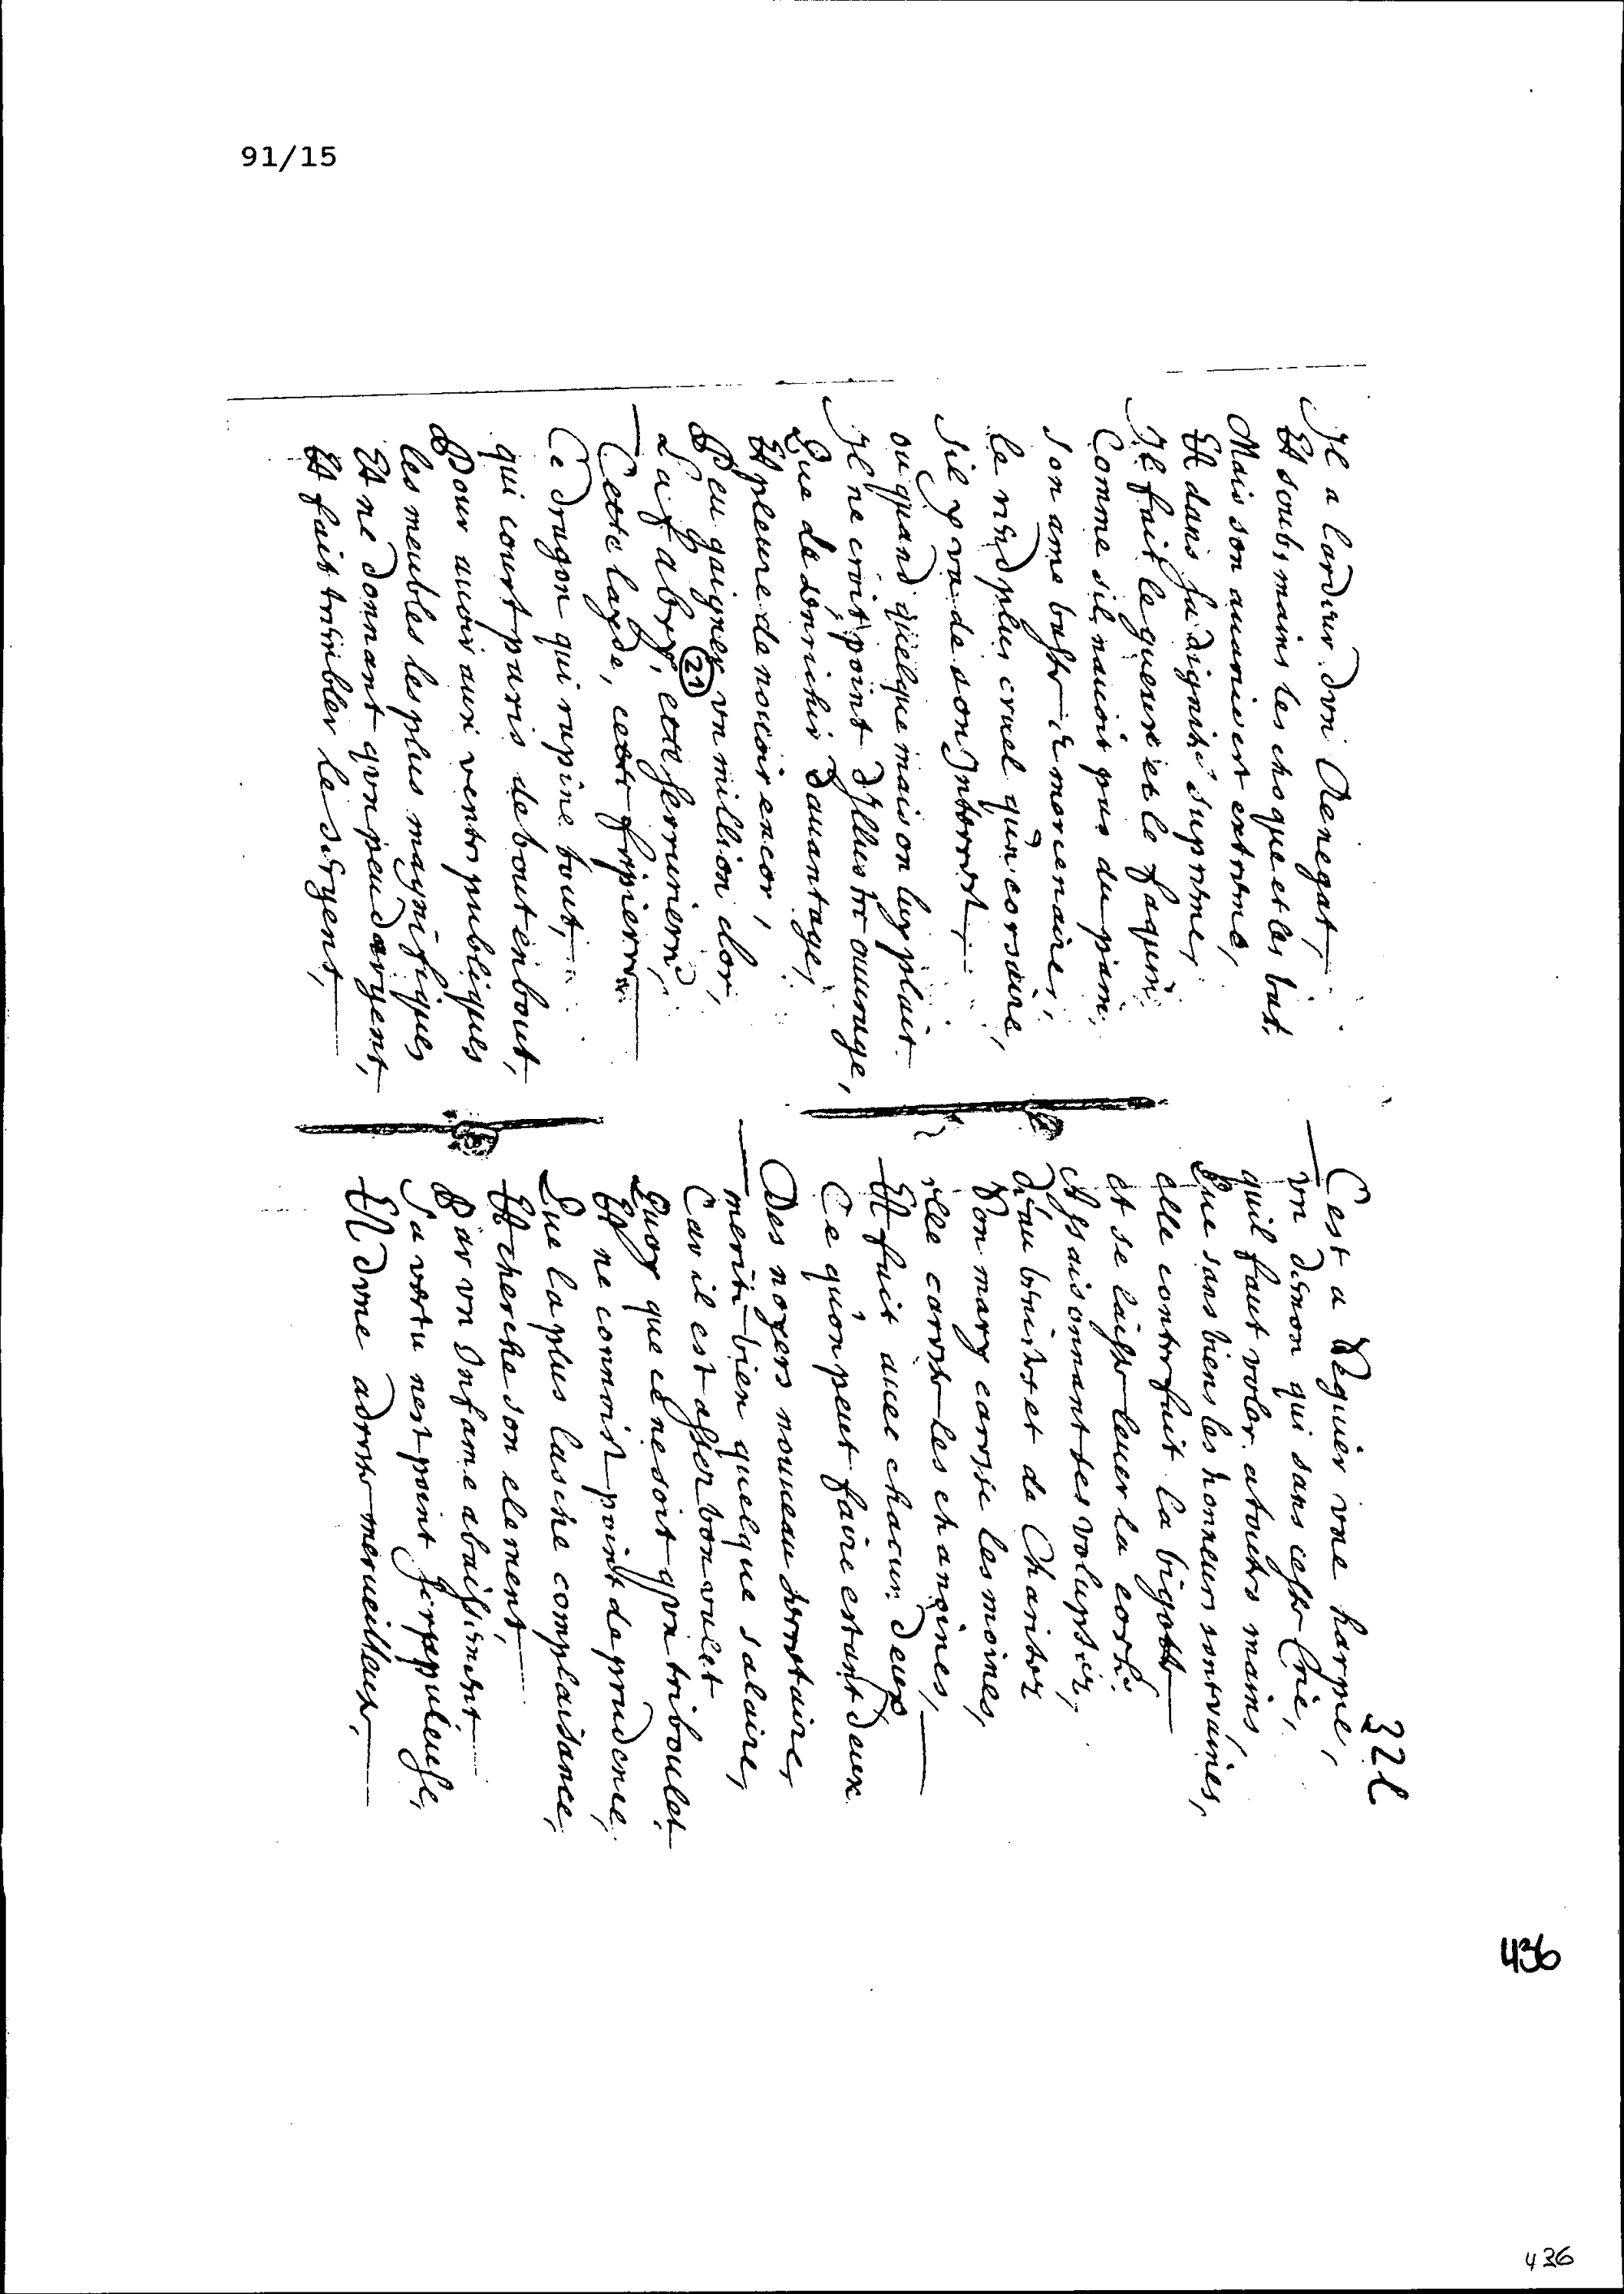 91/15
Il a lardeur dun Renegat,
Et soubs mains les choque et les bat,
Mais son auarice est extreme,
Et dans sa dignité supreme,
Il fait le gueux et le faquin
Comme sil nauoit pas du pain,
son ame basse et mercenaire,
le rend plus cruel qu'un corsaire,
Sil y va de son Interest,
ou quand quelque maison luy plait
Il ne croit point d'Illustre ouurage,
Que de senrichir dauantage,
Et pleure de nouoir encor,
Peu gaigner vn million dor,
La fabry, cette ferruriere,
21
Cette layde, cette fripierre
Ce dragon qui rapine tout,
qui court paris de bout en bout,
Pour auoir aux ventes publiques
les meubles les plus magnifiques
Et ne donnant qvn peu dargent,
Et fait trembler le sergent,
321
C'est a Seguier vne harpie,
vn demon qui sans cesse Crie,
quil faut voler a toutes mains,
Que sans biens les honneurs sont vaines,
elle contrefait la bigotte
et se laisse leuer la cotte
Assaisonnant ses voluptez,
d'eau beniste et de Charitez
Son mary caresse les moines,
elle caresse les chanoines,
Et fait auec chacun deux
Ce qu'on peut faire estant deux
Des noyers nouueau secretaire,
merite bien quelque salaire,
Car il est assez bon valet
Quoy que ce ne soit qvn triboulet
Et ne connoist point de prudence,
Que la plus lasche complaisance,
Et cherche son element,
Par vn Infame abaissement
Sa vertu nest point scrupuleuse,
Et dvne adresse merueilleuse,
436
436